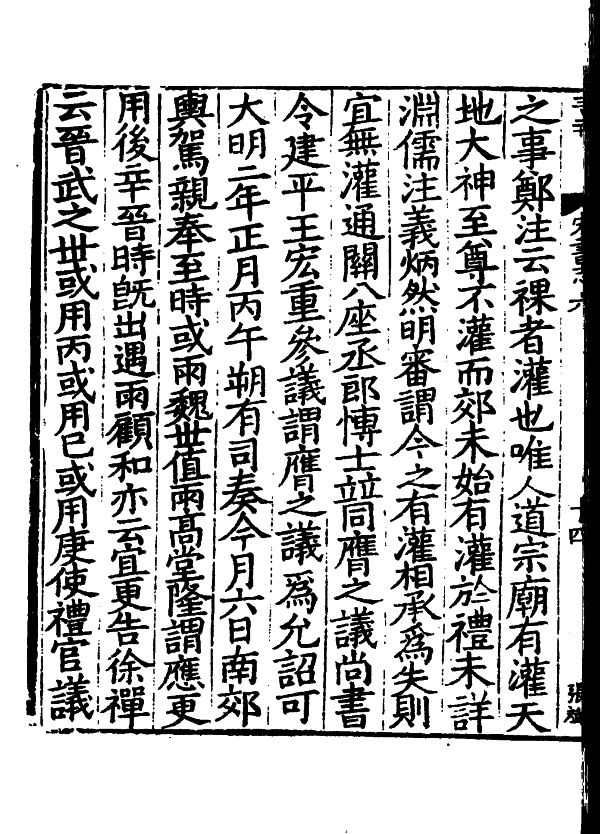 之事鄭注云祼者灌也唯人道宗廟有灌天
地大神至尊不灌而郊未始有灌於禮未詳
淵儒注義炳然明審謂今之有灌相承爲失則
宜無灌通關八座丞郎愽士竝同膺之議尚書
令建平王宏重參議謂膺之議爲允詔可
大明二年正月丙午朔有司奏今月六日南郊
輿駕親奉至時或雨魏世值雨高堂隆謂應更
用後辛晉時旣出遇雨顧和亦云宜更告徐禪
云晉武之世或用丙或用巳或用庚使禮官議
十四